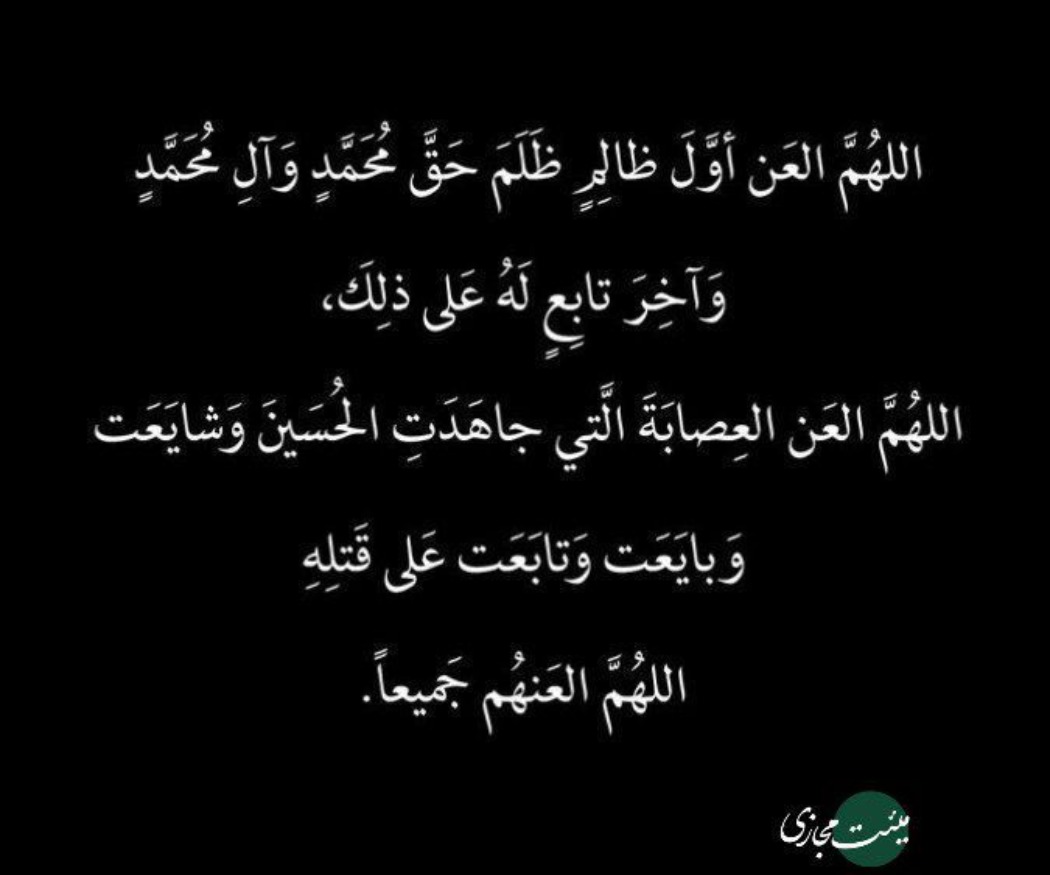 اللهُمَّ العَن أوَّلَ ظالِمٍ ظَلَمَ حَقَّ مُحَمَّدٍ وَآلِ مُحَمَّدٍ
وَآخِرَ تابِعٍ لَهُ عَلى ذلِكَ،
اللهُمَّ العَن العِصابَةَ الَّتي جاهَدَتِ الحُسَينَ وَشايَعَت
وَبايَعَت وَتابَعَت عَلى قَتلِهِ
اللهُمَّ العَنهُم جَميعاً.
هیئت مجازی